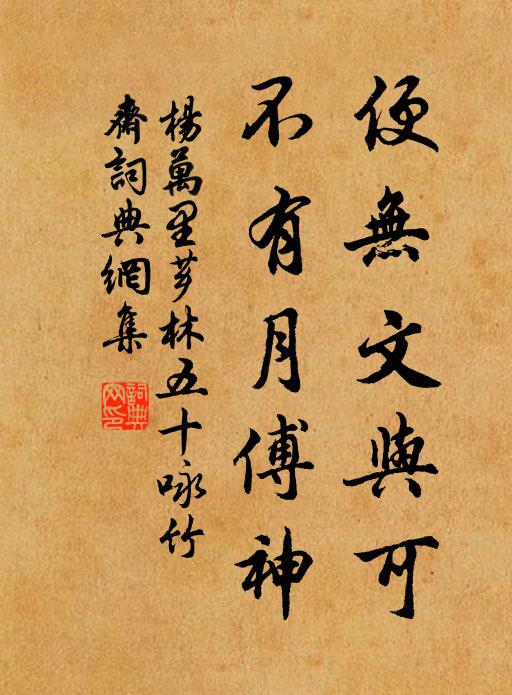 便無文與可
不有月傅神
楊萬里芗林五十咏竹
齋詞典網集
詞典網印